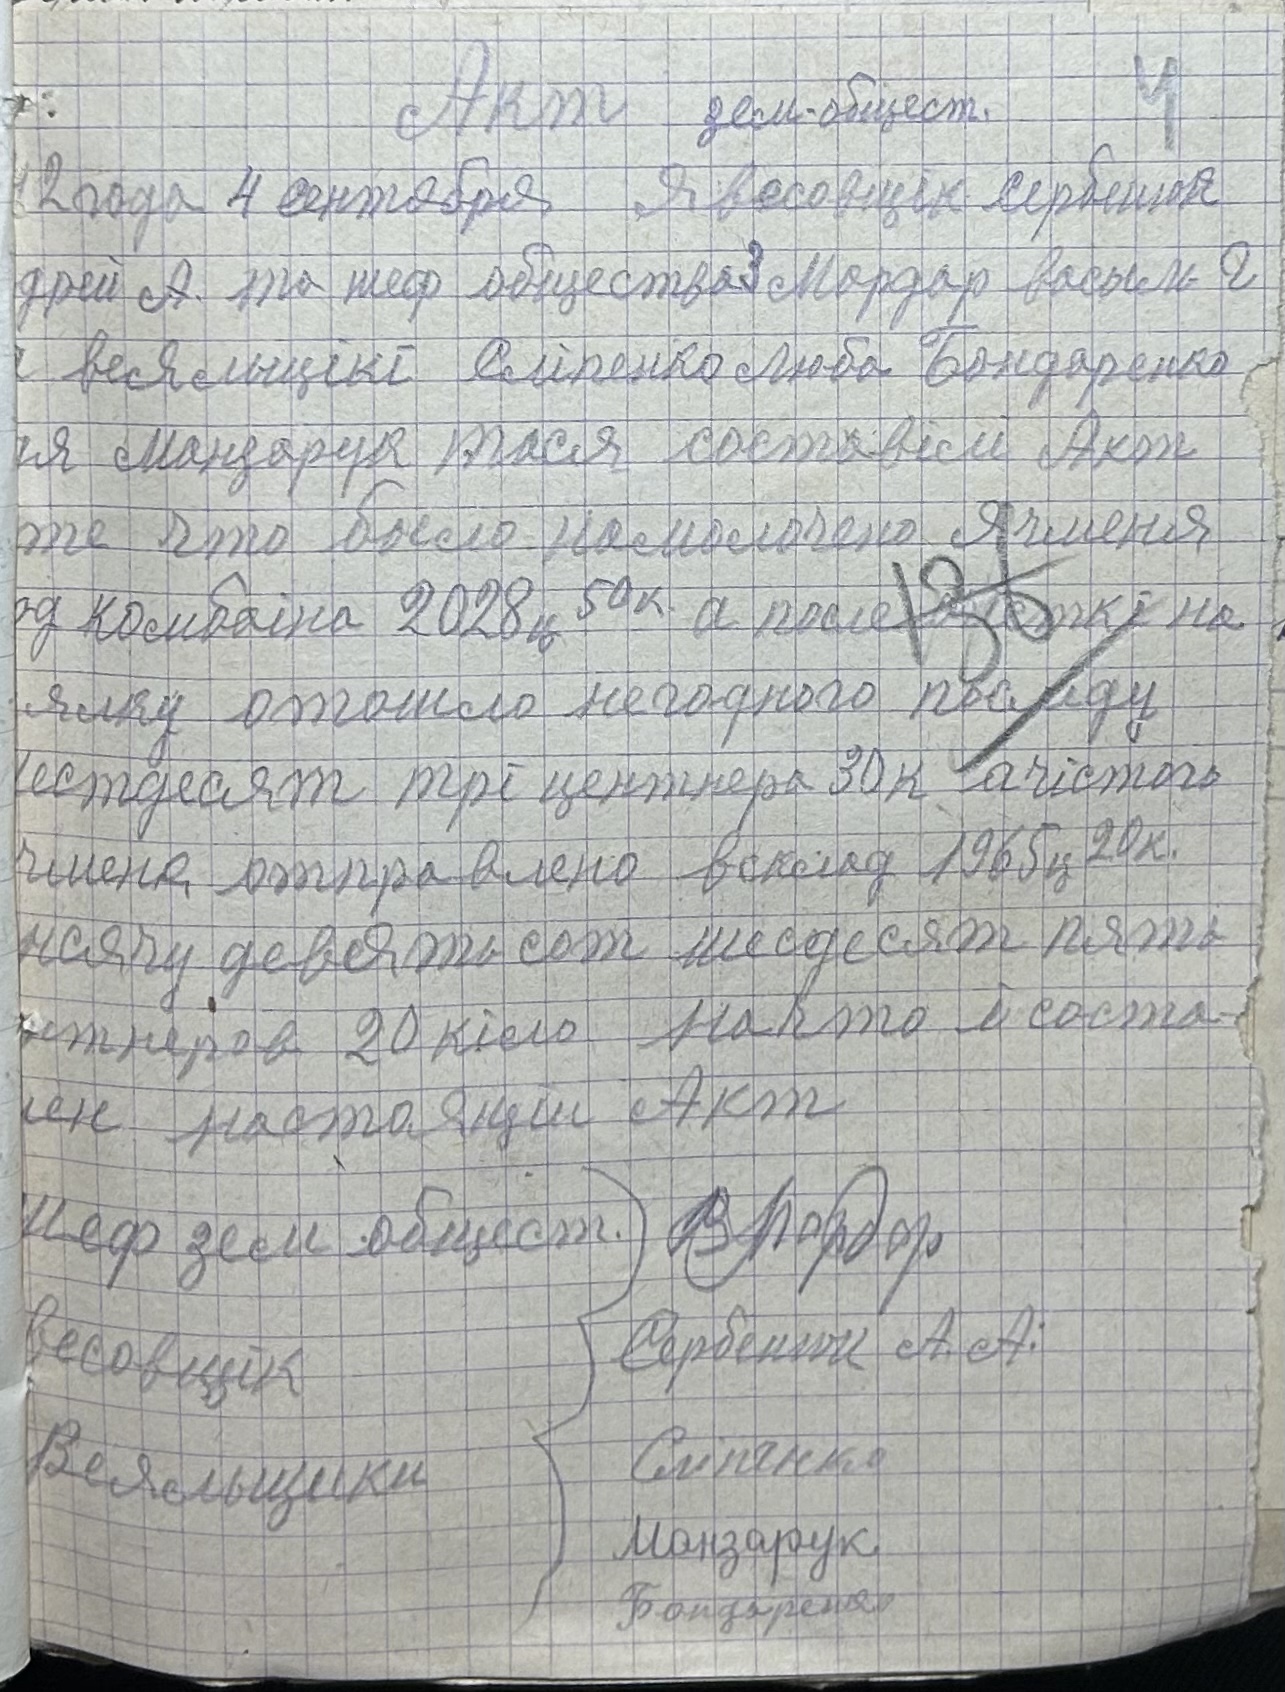 Акт зем-общест. 4
2 года 4 сентября Я весовщік Сербенюк
дрей А. та шеф общества 3 Мардар васыль
веяльщікі Сліпенко Люба Бондаренко
ия Манзарук Тася составілі Акт
те что было намолочено Ячменя
од комбаіна 2028ц 50к. а после чісткі на
ялку отошло негодного посліду
естдесят трі центнера 30к а чістого
чменя отправлено всклад 1965ц 20к.
нсячу девятьсот шесдесят пять
нтнеров 20 кіло начто і соста-
лен настоящіи Акт
Шеф зем общест. В Мардар
весовщік Сербенюк А. А.
Веяльщики Сліпенко
Манзарук
Бондаренко